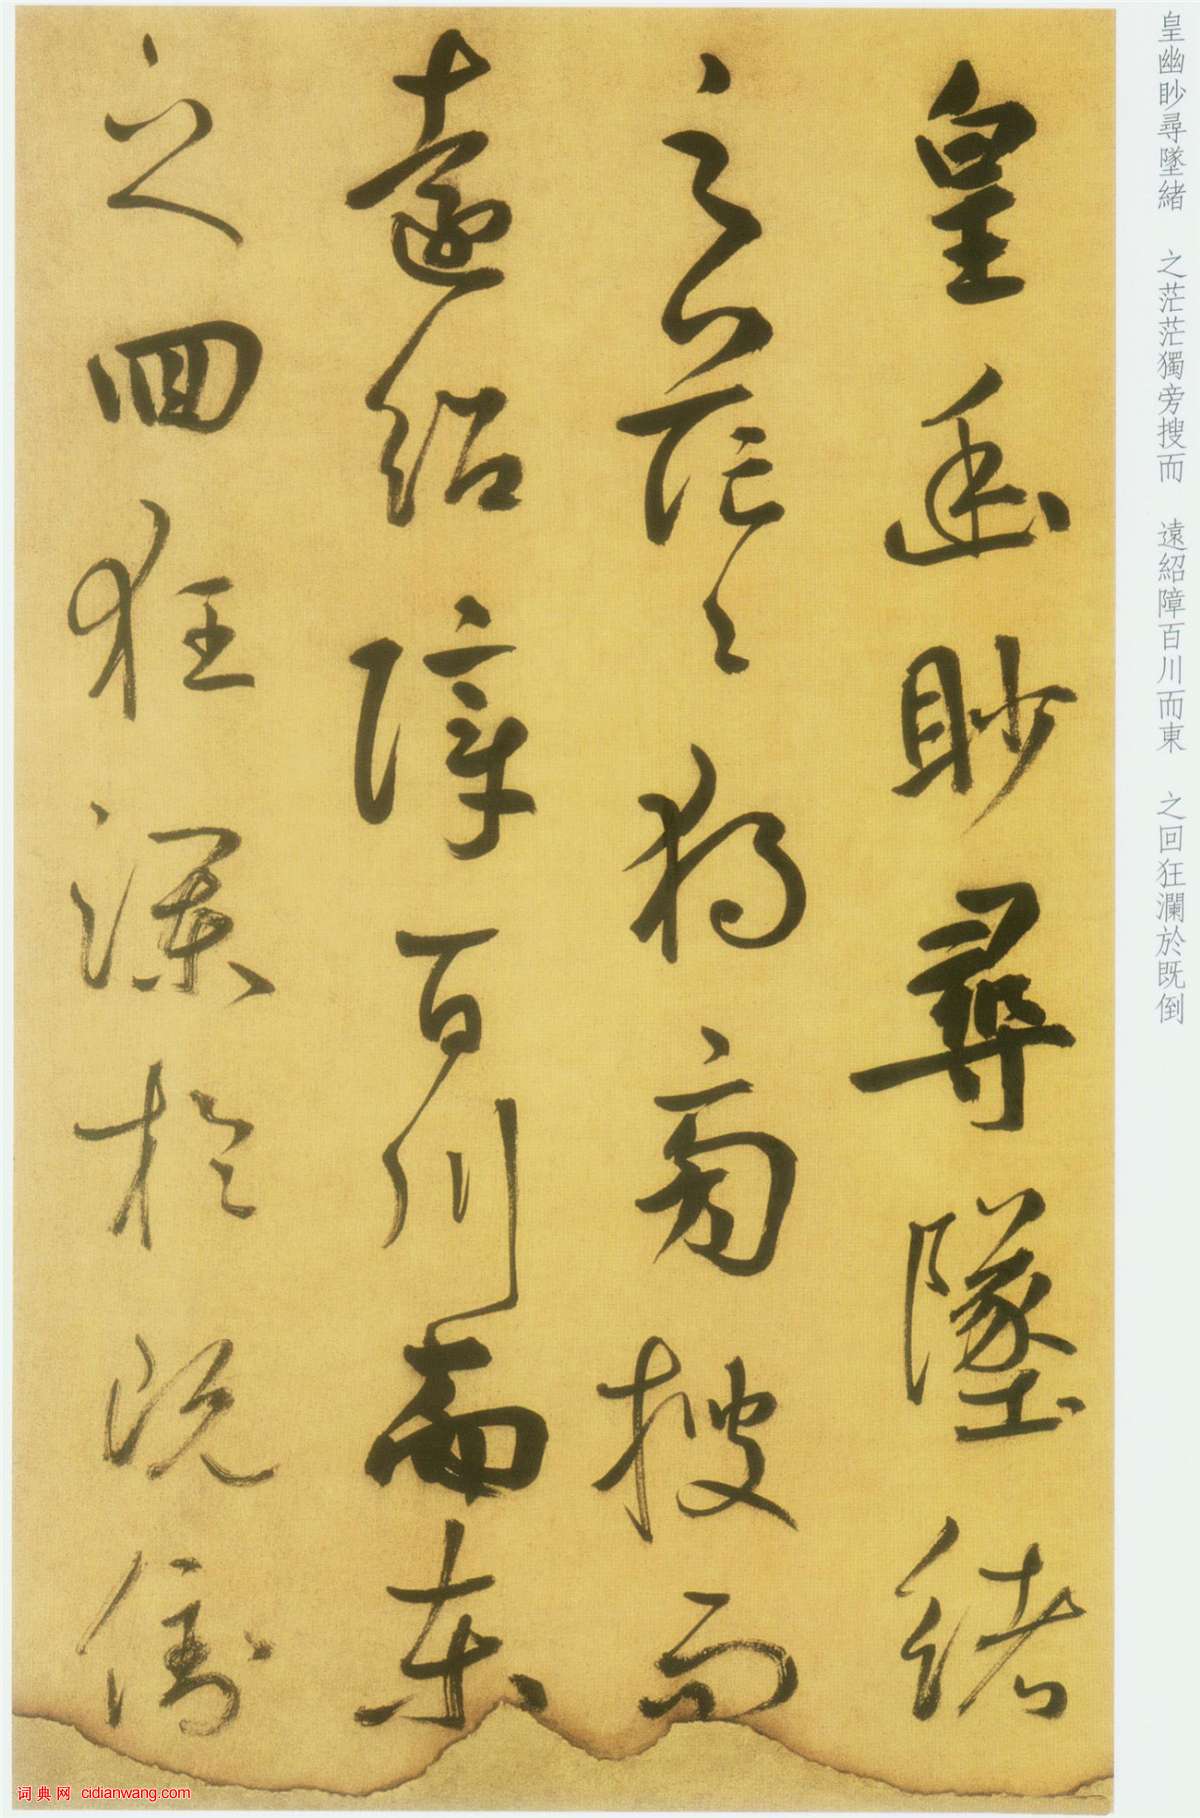 皇幽眇尋墜緒 之茫茫獨旁搜而 遠紹障百川而東 之回狂瀾於既倒
皇幽眇尋墜緒
之茫〻獨旁搜而
遠紹障百川而東
之回狂瀾於既倒
词典网 cidianwang.com